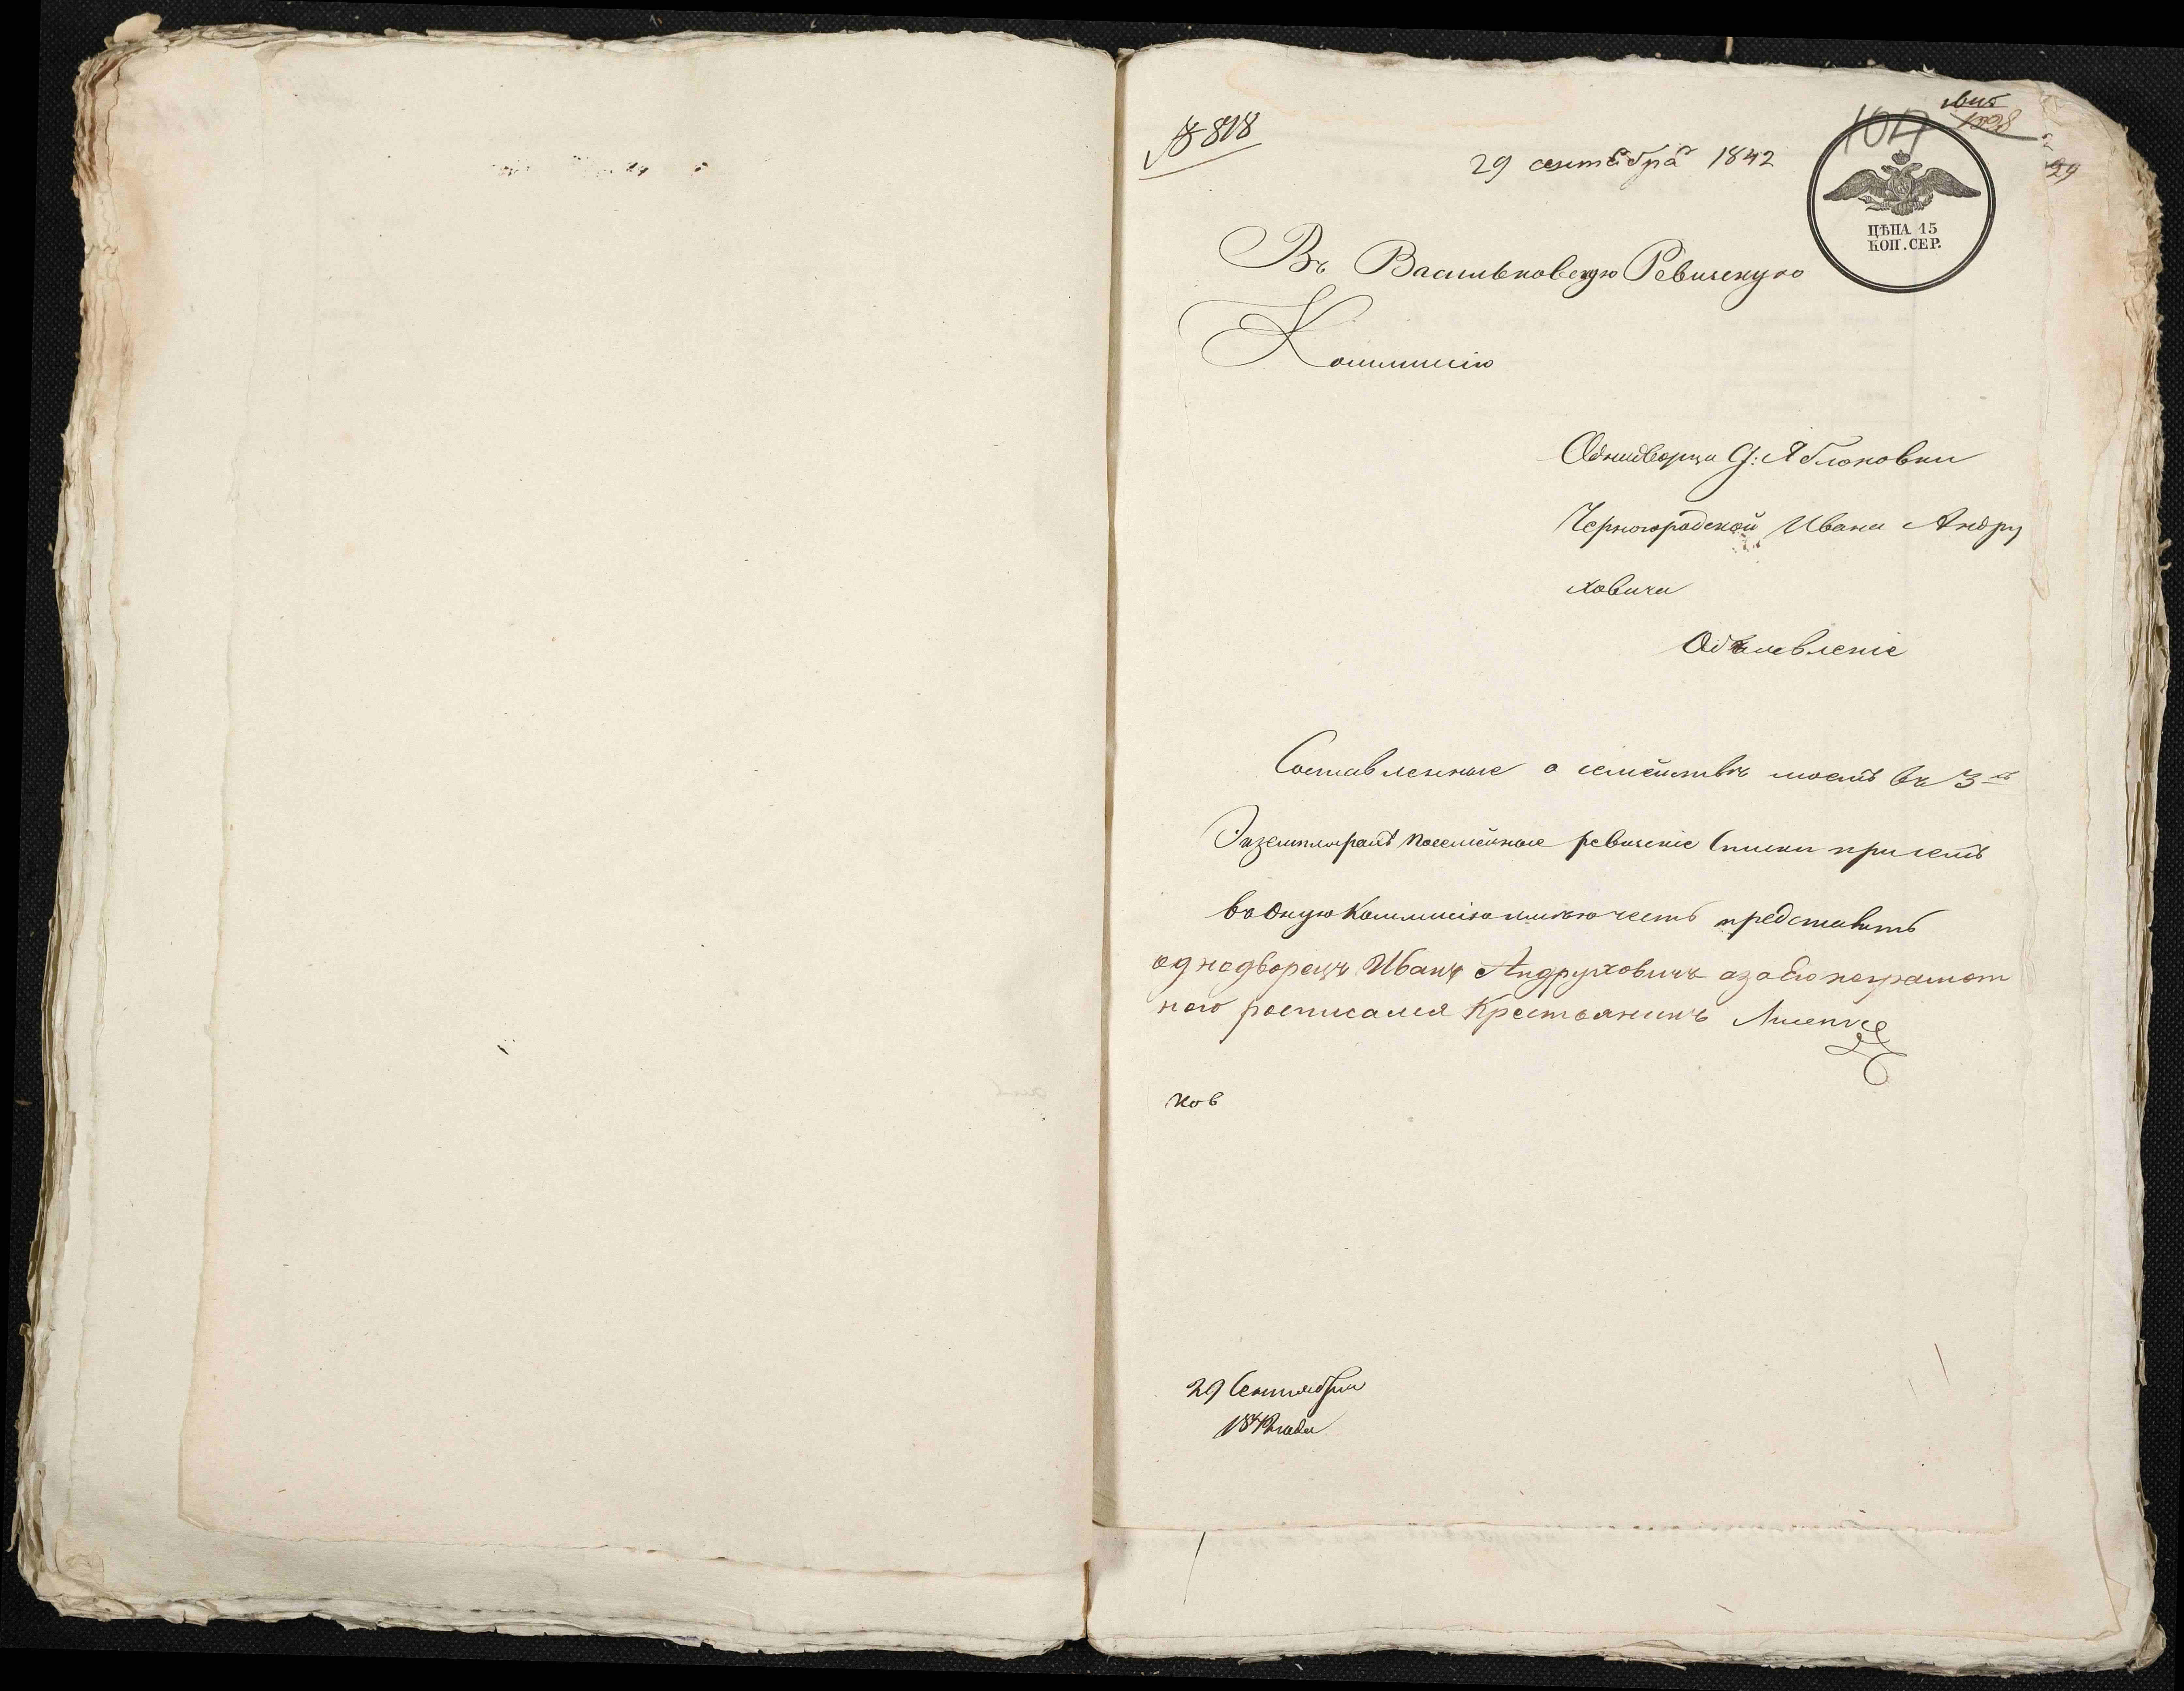 № 818
29 сентебра 1842
29
ЦѢНА 15
КОП. СЕР.
Въ Васильковскую Ревизскую
Коммисію
Однодворца Д: Яблоновки
Черногородской Ивана Андру
ховича
Объявленіе
Составленные о семействѣ моемъ въ 3хъ
Экземплярахъ посемейные ревизскіе Списки при семъ
въ Оную Коммисію имѣю честь представить
однодворецъ Иванъ Андруховичъ а за его неграмот
ного росписался Крестьянинъ Лисенко
29 Сентября
1842 года